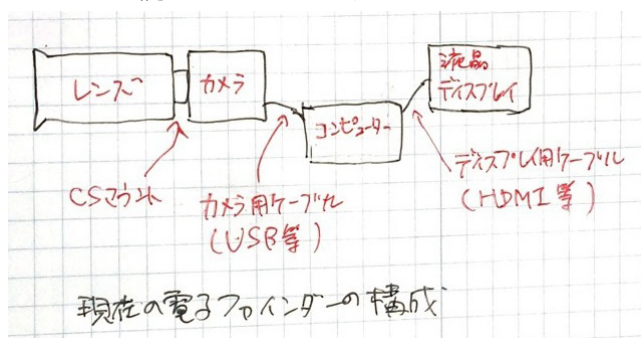 レンズ
カメラ
コンピューター
液晶
ディスプレイ
CSマウント
カメラ用ケーブル
(USB等)
ディスプレイ用ケーブル
(HDMI等)
現在の電子ファインダーの構成